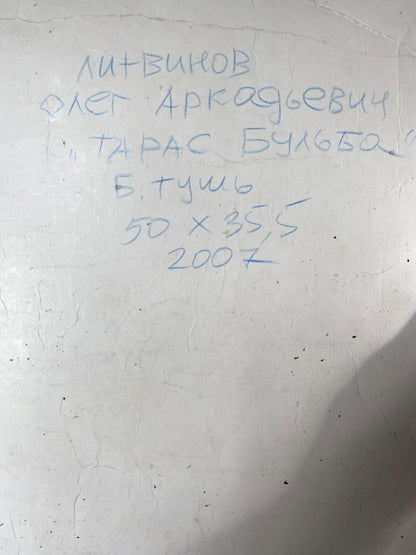 ЛИТВИНОВ
ОЛЕГ АРКАДЬЕВИЧ
„ТАРАС БУЛЬБА"
Б. ТУШЬ
50 X 35,5
2007